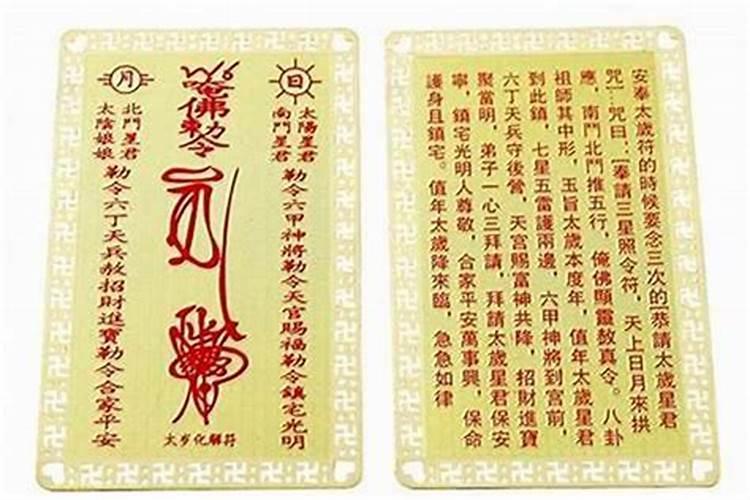 日
太陽星君
南鬥星君
勒令六甲神將勒令天官賜福勒令鎮宅光明
唵佛勅令
太岁化解符
月
北鬥星君
太陰娘娘
勒令六丁天兵赦招財進寶勒令合家平安
安奉太歲符的時候要念三次的[恭請太歲星君
咒]...咒曰:[奉請三星照令符，天上日月來拱
應，南鬥北鬥推五行，俺佛顯靈敖真令。八卦
祖師其中形，玉旨太歲本度年，值年太歲星君
到此鎮，七星五雷護兩邊，六甲神將到宮前，
六丁天兵守後營，天宮賜富神共降，招財進寶
聚當明，弟子一心三拜請，拜請太歲星君保安
寧，鎮宅光明人尊敬，合家平安萬事興，保命
護身且鎮宅。值年太歲降來臨，急急如律